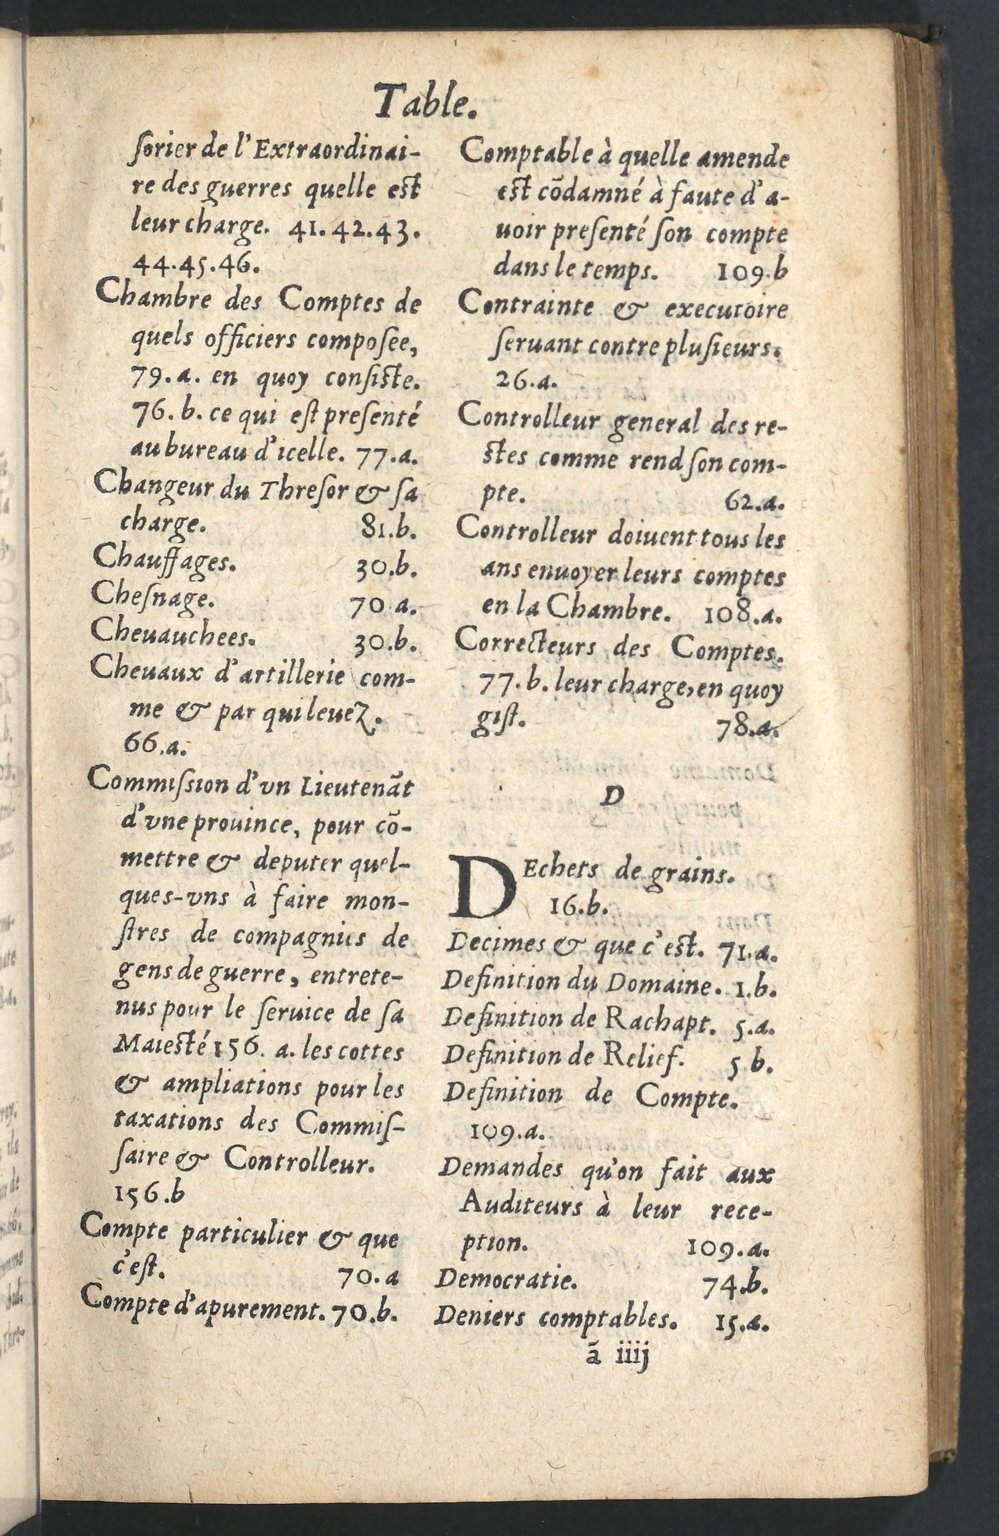 Table.
ſorier de l'Extraordinai-
re des guerres quelle est
leur charge. 41. 42. 43.
44. 45. 46.
Chambre des Comptes de
quels officiers composee,
79. a. en quoy conſiste.
76. b. ce qui eſt preſenté
au bureau d'icelle. 77. a.
Changeur du Threſor & ſa
charge. 81. b.
Chauffages. 30. b.
Cheſnage. 70 a.
Cheuauchees. 30. b.
Cheuaux d'artillerie com-
me & par qui leuez.
66. a.
Commiſsion d'vn Lieutenāt
d'vne prouince, pour cō-
mettre & deputer quel-
ques-vns à faire mon-
ſtres de compagnies de
gens de guerre, entrete-
nus pour le ſeruice de ſa
Maiesté 156. a. les cottes
& ampliations pour les
taxations des Commiſ-
ſaire & Controlleur.
156. b
Compte particulier & que
c'eſt. 70. a
Compte d'apurement. 70. b.
Comptable à quelle amende
est cōdamné à faute d'a-
uoir preſenté ſon compte
dans le temps. 109. b
Contrainte & executoire
ſeruant contre pluſieurs.
26. a.
Controlleur general des re-
stes comme rend ſon com-
pte. 62. a.
Controlleur doiuent tous les
ans enuoyer leurs comptes
en la Chambre. 108. a.
Correcteurs des Comptes.
77. b. leur charge, en quoy
giſt. 78. a.
D
DEchets de grains.
16. b.
Decimes & que c'est. 71. a.
Definition du Domaine. 1. b.
Definition de Rachapt. 5. a.
Definition de Relief. 5 b.
Definition de Compte.
109. a.
Demandes qu'on fait aux
Auditeurs à leur rece-
ption. 109. a.
Democratie. 74. b.
Deniers comptables. 15. a.
ã iiij